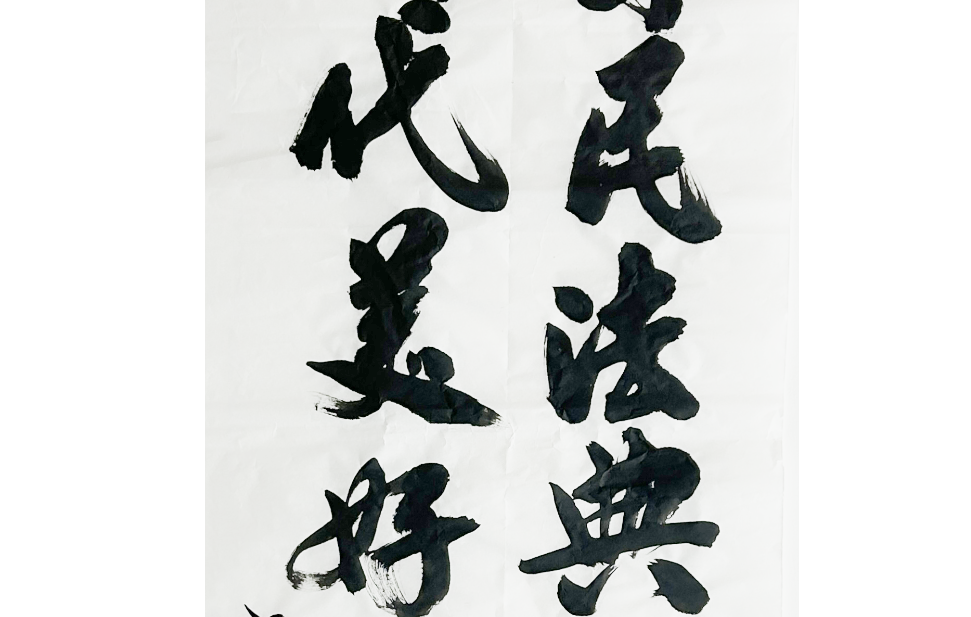 民法典
代美好